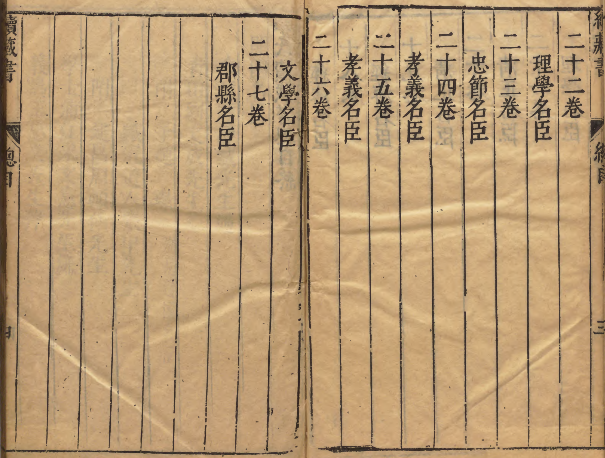 續藏書 總目 三
二十二卷
理學名臣
二十三卷
忠節名臣
二十四卷
孝義名臣
二十五卷
孝義名臣
二十六卷
文學名臣
二十七卷
郡縣名臣
續藏書 總目 四